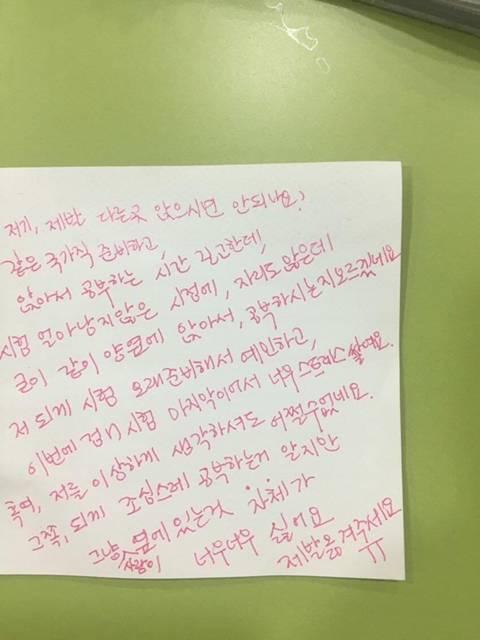 저기, 제발 다른곳 앉으시면 안되나요?
같은 국가직 준비하고,
앉아서 공부하는 시간 길고한데,
시험 얼마남지않은 시점에, 자리도 많은데
굳이 같이 양옆에 앉아서, 공부하시는지모르겠네요
저 되게 시험 오래준비해서 예민하고,
이번에 시험 마지막이여서 너무 스트레스 쌓여요.
혹여, 저를 이상하게 생각하셔도 어쩔수없네요.
그쪽, 되게 조심스레 공부하는거 알지만
그냥 옆에 사람이 있는것 자체가
너무너무 싫어요
제발옮겨주세요
ㅠ